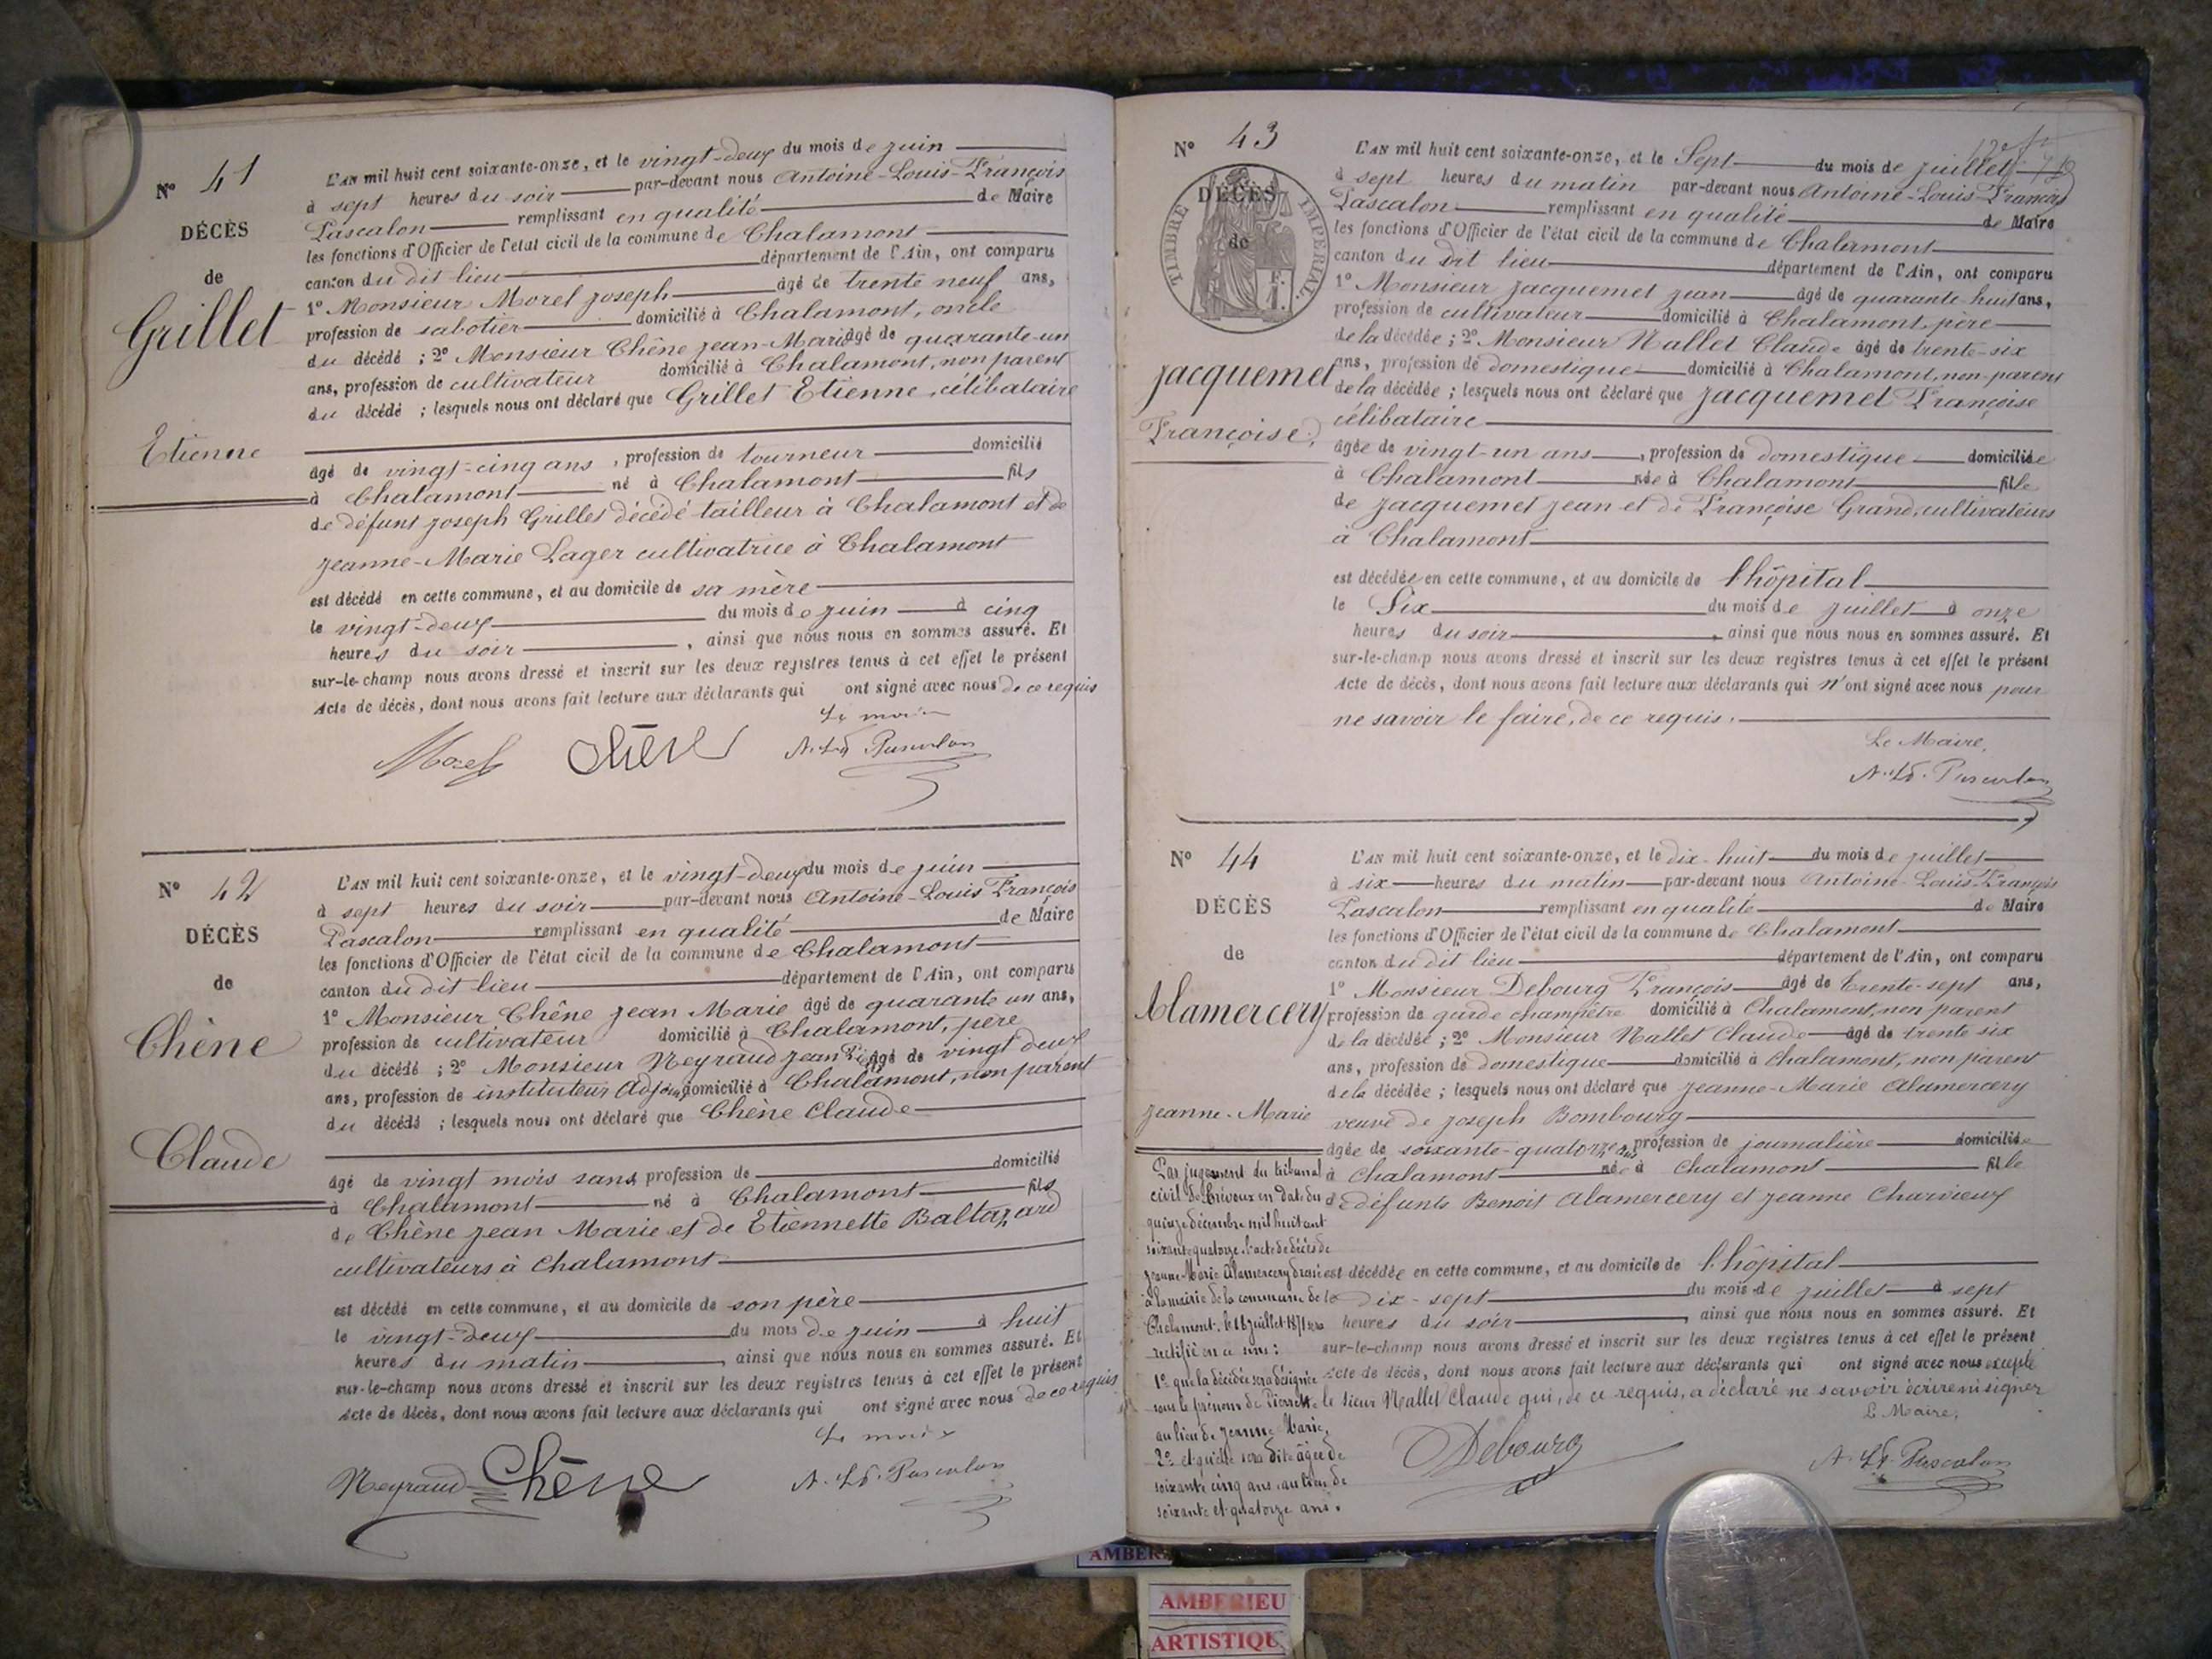 N° 41
DÉCÈS
de
Grillet
Etienne
L'AN mil huit cent soixante-onze, et le vingt-deux du mois de juin
à sept heures du soir par-devant nous Antoine-Louis-François
Pascalon remplissant en qualité de Maire
les fonctions d'Officier de l'état civil de la commune de Chalamont
canton du dit lieu département de l'Ain, ont comparu
1° Monsieur Morel Joseph âgé de trente neuf ans,
profession de sabotier domicilié à Chalamont, oncle
du décédé ; 2° Monsieur Chêne Jean-Marie âgé de quarante-un
ans, profession de cultivateur domicilié à Chalamont, non parent
du décédé ; lesquels nous ont déclaré que Grillet Etienne, célibataire
âgé de vingt-cinq ans, profession de tourneur domicilié
à Chalamont né à Chalamont fils
de défunt Joseph Grillet décédé tailleur à Chalamont et de
Jeanne-Marie Lager cultivatrice à Chalamont
est décédé en cette commune, et au domicile de sa mère
le vingt-deux du mois de juin à cinq
heures du soir, ainsi que nous nous en sommes assuré. Et
sur-le-champ nous avons dressé et inscrit sur les deux registres tenus à cet effet le présent
Acte de décès, dont nous avons fait lecture aux déclarants qui ont signé avec nous de ce requis
Le maire
Morel Chêne A. Ls Pascalon
N° 42
DÉCÈS
de
Chêne
Claude
L'AN mil huit cent soixante-onze, et le vingt-deux du mois de juin
à sept heures du soir par-devant nous Antoine-Louis François
Pascalon remplissant en qualité de Maire
les fonctions d'Officier de l'état civil de la commune de Chalamont
canton du dit lieu département de l'Ain, ont comparu
1° Monsieur Chêne Jean Marie âgé de quarante un ans,
profession de cultivateur domicilié à Chalamont, père
du décédé ; 2° Monsieur Neyraud Jean âgé de vingt deux
ans, profession de instituteur adjoint domicilié à Chalamont, non parent
du décédé ; lesquels nous ont déclaré que Chêne Claude
âgé de vingt mois sans profession de domicilié
à Chalamont né à Chalamont fils
de Chêne Jean Marie et de Etiennette Baltazard
cultivateurs à Chalamont
est décédé en cette commune, et au domicile de son père
le vingt-deux du mois de juin à huit
heures du matin, ainsi que nous nous en sommes assuré. Et
sur-le-champ nous avons dressé et inscrit sur les deux registres tenus à cet effet le présent
Acte de décès, dont nous avons fait lecture aux déclarants qui ont signé avec nous de ce requis
Le maire
Neyraud Chêne A. Ls. Pascalon
N° 43
DÉCÈS
de
TIMBRE IMPÉRIAL
Jacquemet
Françoise
L'AN mil huit cent soixante-onze, et le Sept du mois de juillet
à sept heures du matin par-devant nous Antoine-Louis-François
Pascalon remplissant en qualité de Maire
les fonctions d'Officier de l'état civil de la commune de Chalamont
canton du dit lieu département de l'Ain, ont comparu
1° Monsieur Jacquemet Jean âgé de quarante huit ans,
profession de cultivateur domicilié à Chalamont, père
de la décédée ; 2° Monsieur Nallet Claude âgé de trente-six
ans, profession de domestique domicilié à Chalamont, non-parent
de la décédée ; lesquels nous ont déclaré que Jacquemet Françoise
célibataire
âgée de vingt-un ans, profession de domestique domiciliée
à Chalamont née à Chalamont fille
de Jacquemet Jean et de Françoise Grand, cultivateurs
à Chalamont
est décédée en cette commune, et au domicile de l'hôpital
le Six du mois de juillet à onze
heures du soir, ainsi que nous nous en sommes assuré. Et
sur-le-champ nous avons dressé et inscrit sur les deux registres tenus à cet effet le présent
Acte de décès, dont nous avons fait lecture aux déclarants qui n'ont signé avec nous pour
ne savoir le faire, de ce requis.
Le Maire,
A. Ls. Pascalon
N° 44
DÉCÈS
de
Alamercery
Jeanne-Marie
L'AN mil huit cent soixante-onze, et le dix-huit du mois de juillet
à six heures du matin par-devant nous Antoine-Louis-François
Pascalon remplissant en qualité de Maire
les fonctions d'Officier de l'état civil de la commune de Chalamont
canton du dit lieu département de l'Ain, ont comparu
1° Monsieur Debourg François âgé de trente-sept ans,
profession de garde champêtre domicilié à Chalamont, non parent
de la décédée ; 2° Monsieur Nallet Claude âgé de trente six
ans, profession de domestique domicilié à Chalamont, non parent
de la décédée ; lesquels nous ont déclaré que Jeanne-Marie Alamercery
veuve de Joseph Bombourg
âgée de soixante-quatorze ans profession de journalière domiciliée
à Chalamont née à Chalamont fille
de défunts Benoit Alamercery et Jeanne Charvieux
est décédée en cette commune, et au domicile de l'hôpital
le dix-sept du mois de juillet à sept
heures du soir, ainsi que nous nous en sommes assuré. Et
sur-le-champ nous avons dressé et inscrit sur les deux registres tenus à cet effet le présent
Acte de décès, dont nous avons fait lecture aux déclarants qui ont signé avec nous excepté
le sieur Nallet Claude qui, de ce requis, a déclaré ne savoir écrire ni signer
Le Maire,
Debourg A. Ls. Pascalon
Par jugement du tribunal
civil de Trévoux en date du
quinze décembre mil huit cent
soixante quatorze l'acte de décès de
Jeanne-Marie Alamercery dressé
à la mairie de la commune de
Chalamont, le 18 juillet 1871 sera
rectifié en ce sens :
1° que la décédée sera désignée
sous le prénom de Pierrette
au lieu de Jeanne Marie,
2° et qu'elle sera dite âgée de
soixante cinq ans, au lieu de
soixante et quatorze ans.
AMBERIEU
ARTISTIQU